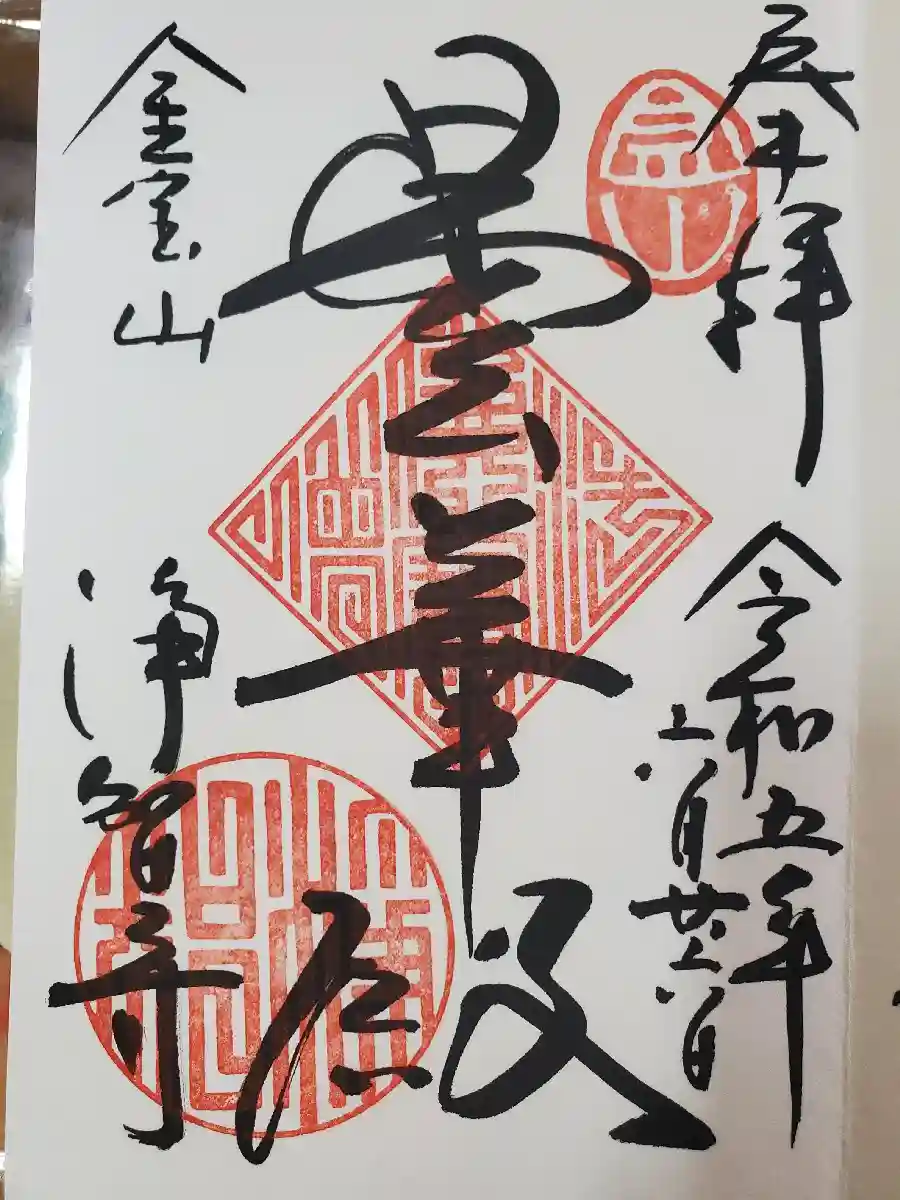 奉拝
令和五年
六月廿六日
曇華殿
金宝山
浄智寺